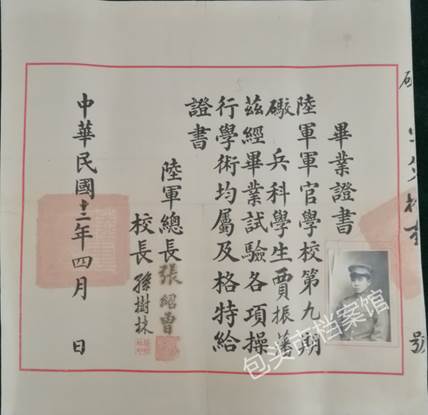 畢業證書
陸軍軍官學校第九期
礮兵科學生賈振藩
茲經畢業試驗各項操
行學術均屬及格特給
證書
陸軍總長張紹曾
校長孫樹林
中華民國十二年四月 日
號
包头市档案馆